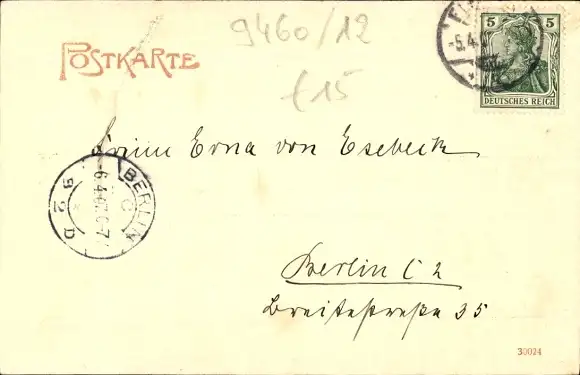 9460/12
POSTKARTE
£15
5 5
DEUTSCHES REICH
-5.4.
Erna von Esebeck
BERLIN C
-6.4.07.6-7
2 D
Berlin C 2
Breitestraße 35
30024